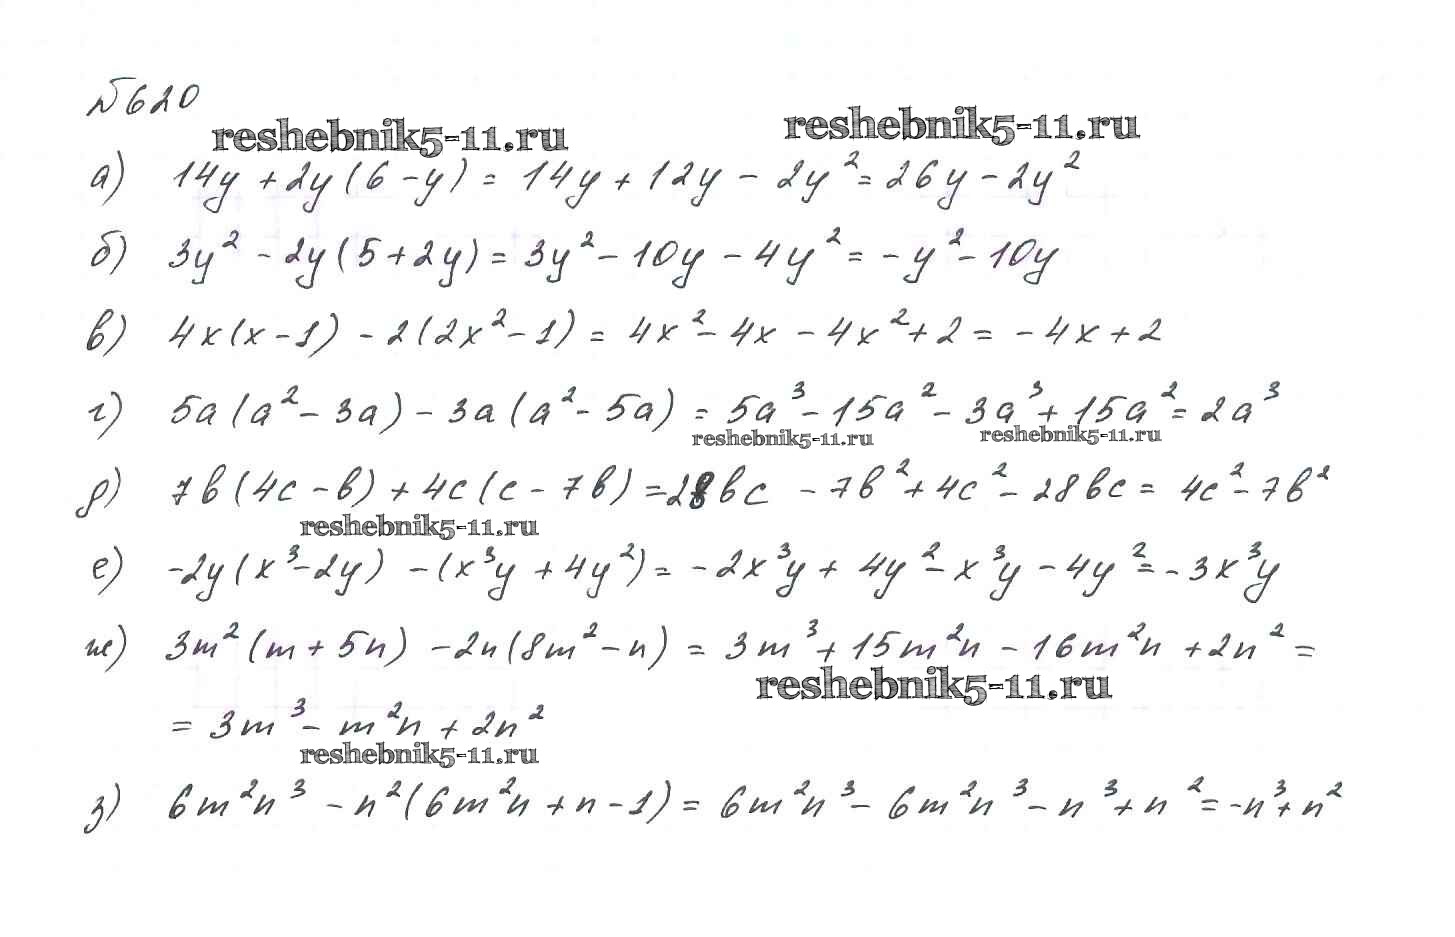 №620
reshebnik5-11.ru reshebnik5-11.ru
а) 14y + 2y(6 - y) = 14y + 12y - 2y² = 26y - 2y²
б) 3y² - 2y(5 + 2y) = 3y² - 10y - 4y² = -y² - 10y
в) 4x(x - 1) - 2(2x² - 1) = 4x² - 4x - 4x² + 2 = -4x + 2
г) 5a(a² - 3a) - 3a(a² - 5a) = 5a³ - 15a² - 3a³ + 15a² = 2a³
reshebnik5-11.ru reshebnik5-11.ru
д) 7b(4c - b) + 4c(c - 7b) = 28bc - 7b² + 4c² - 28bc = 4c² - 7b²
reshebnik5-11.ru
е) -2y(x³ - 2y) - (x³y + 4y²) = -2x³y + 4y² - x³y - 4y² = -3x³y
ж) 3m²(m + 5n) - 2n(8m² - n) = 3m³ + 15m²n - 16m²n + 2n² =
reshebnik5-11.ru
= 3m³ - m²n + 2n²
reshebnik5-11.ru
з) 6m²n³ - n²(6m²n + n - 1) = 6m²n³ - 6m²n³ - n³ + n² = -n³ + n²